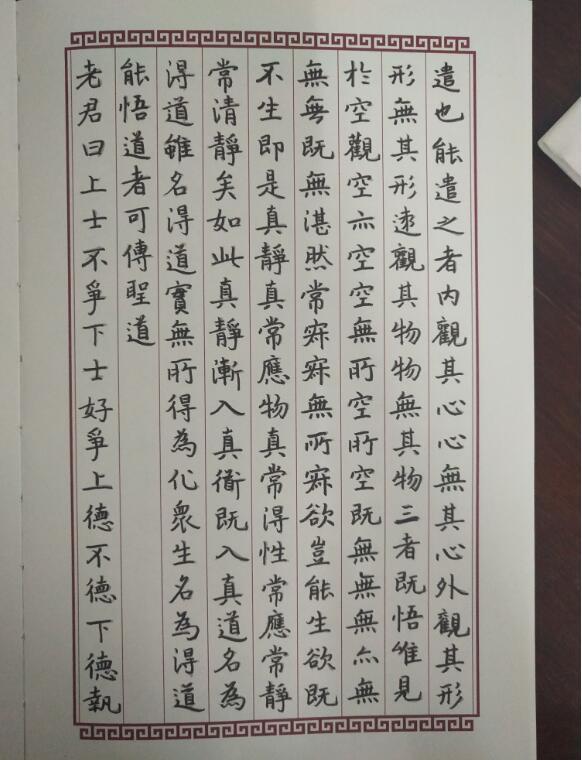 遣也能遣之者内觀其心心無其心外觀其形
形無其形遠觀其物物無其物三者既悟唯見
於空觀空亦空空無所空所空既無無無亦無
無無既無湛然常寂寂無所寂欲豈能生欲既
不生即是真靜真常應物真常得性常應常靜
常清靜矣如此真靜漸入真衜既入真道名為
得道雖名得道實無所得為化衆生名為得道
能悟道者可傳聖道
老君曰上士不爭下士好爭上德不德下德執